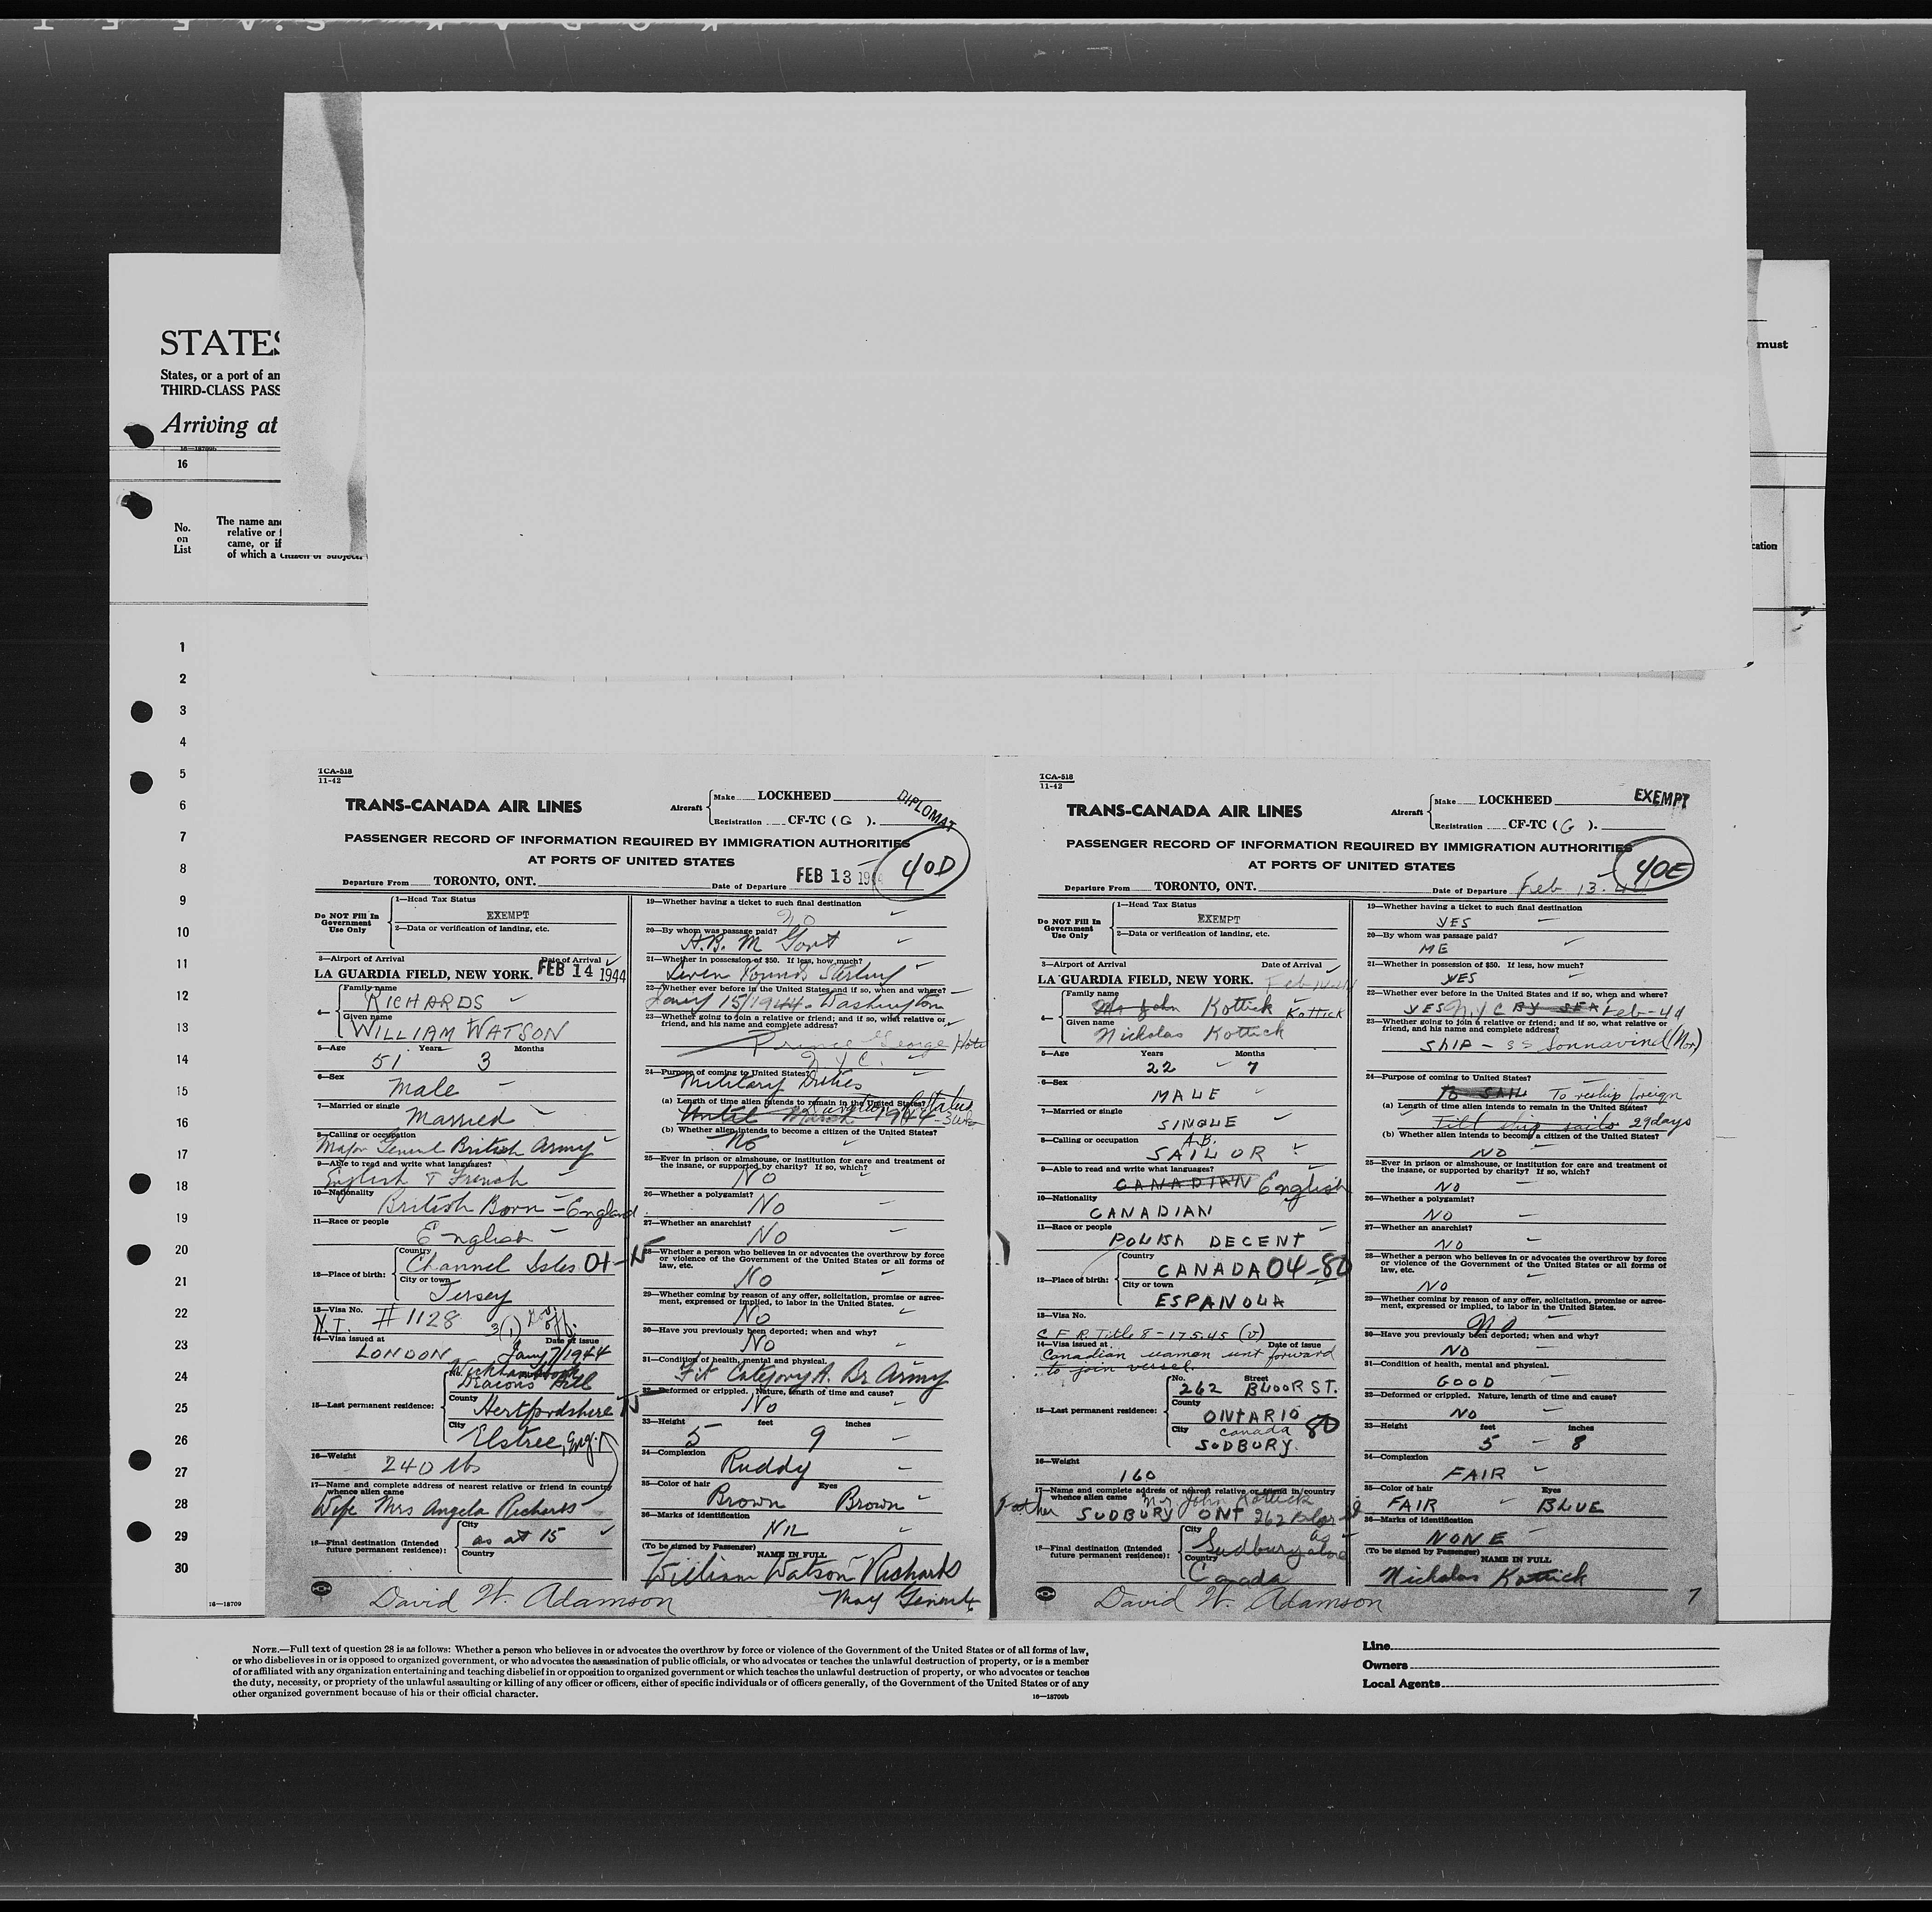 STATES
must
States, or a port of an
THIRD-CLASS PASS
Arriving at
16—18709b
16
No.
on
List
The name and
relative or f
came, or if
of which a citizen or subject
cation
1
2
3
4
5
6
7
8
9
10
11
12
13
14
15
16
17
18
19
20
21
22
23
24
25
26
27
28
29
30
16—18709
TCA-518
11-42
TRANS-CANADA AIR LINES
Aircraft
Make LOCKHEED
Registration CF-TC (G ).
DIPLOMAT
PASSENGER RECORD OF INFORMATION REQUIRED BY IMMIGRATION AUTHORITIES
AT PORTS OF UNITED STATES
40D
Departure From TORONTO, ONT. Date of Departure FEB 13 19
Do NOT Fill In
Government
Use Only
1—Head Tax Status
EXEMPT
2—Data or verification of landing, etc.
3—Airport of Arrival Date of Arrival
LA GUARDIA FIELD, NEW YORK. FEB 14 1944
4—
Family name
RICHARDS
Given name
WILLIAM WATSON
5—Age Years Months
51 3
6—Sex
Male
7—Married or single
Married
8—Calling or occupation
Major General British Army
9—Able to read and write what languages?
English & French
10—Nationality
British Born - England
11—Race or people
English
12—Place of birth:
Country
Channel Isles 04-N
City or town
Jersey
13—Visa No.
N.T. # 1128 3(1)
14—Visa issued at Date of issue
LONDON Jany 7/1944
15—Last permanent residence:
No.
Deacons Hill
County
Hertfordshire N
City
Elstree, Eng.
16—Weight
240 lbs
17—Name and complete address of nearest relative or friend in country
whence alien came
Wife Mrs Angela Richards
18—Final destination (Intended
future permanent residence):
City
as at 15
Country
David W. Adamson
19—Whether having a ticket to such final destination
No
20—By whom was passage paid?
H.B.M Govt
21—Whether in possession of $50. If less, how much?
Seven Pounds Sterling
22—Whether ever before in the United States and if so, when and where?
Jany 15/1944. Washington
23—Whether going to join a relative or friend; and if so, what relative or
friend, and his name and complete address?
Prince George Hote
N.Y.C.
24—Purpose of coming to United States?
Military Duties
(a) Length of time alien intends to remain in the United States?
Duration of Status
Until March 1944
(b) Whether alien intends to become a citizen of the United States?
No
25—Ever in prison or almshouse, or institution for care and treatment of
the insane, or supported by charity? If so, which?
No
26—Whether a polygamist?
No
27—Whether an anarchist?
No
28—Whether a person who believes in or advocates the overthrow by force
or violence of the Government of the United States or all forms of
law, etc.
No
29—Whether coming by reason of any offer, solicitation, promise or agree-
ment, expressed or implied, to labor in the United States.
No
30—Have you previously been deported; when and why?
No
31—Condition of health, mental and physical.
Fit Category A. Br Army
32—Deformed or crippled. Nature, length of time and cause?
No
33—Height feet inches
5 9
34—Complexion
Ruddy
35—Color of hair Eyes
Brown Brown
36—Marks of identification
NIL
(To be signed by Passenger)
NAME IN FULL
William Watson Richards
Maj General
TCA-518
11-42
TRANS-CANADA AIR LINES
Aircraft
Make LOCKHEED
Registration CF-TC (G ).
EXEMPT
PASSENGER RECORD OF INFORMATION REQUIRED BY IMMIGRATION AUTHORITIES
AT PORTS OF UNITED STATES
40E
Departure From TORONTO, ONT. Date of Departure Feb 13. 44
Do NOT Fill In
Government
Use Only
1—Head Tax Status
EXEMPT
2—Data or verification of landing, etc.
3—Airport of Arrival Date of Arrival
LA GUARDIA FIELD, NEW YORK.
4—
Family name
Mr John Kottick Kottick
Given name
Nicholas Kottick
5—Age Years Months
22 7
6—Sex
MALE
7—Married or single
SINGLE
8—Calling or occupation
A.B.
SAILOR
9—Able to read and write what languages?
CANADIAN English
10—Nationality
CANADIAN
11—Race or people
POLISH DECENT
12—Place of birth:
Country
CANADA 04-80
City or town
ESPANOLA
13—Visa No.
C F R Title 8 - 175.45 (v)
14—Visa issued at Date of issue
Canadian seaman sent forward
to join vessel.
15—Last permanent residence:
No. Street
262 BLOOR ST.
County
ONTARIO 80
City
Canada
SUDBURY.
16—Weight
160
17—Name and complete address of nearest relative or friend in country
whence alien came Mr. John Kottick
Father SUDBURY ONT 262 Bloor St
18—Final destination (Intended
future permanent residence):
City
Sudbury as above
Country
Canada
David W. Adamson
19—Whether having a ticket to such final destination
YES
20—By whom was passage paid?
ME
21—Whether in possession of $50. If less, how much?
YES
22—Whether ever before in the United States and if so, when and where?
YES N.Y.C BY SEA Feb-44
23—Whether going to join a relative or friend; and if so, what relative or
friend, and his name and complete address?
SHIP - SS Sonnavind (Nor)
24—Purpose of coming to United States?
To SAIL To reship foreign
(a) Length of time alien intends to remain in the United States?
Till ship sails 29 days
(b) Whether alien intends to become a citizen of the United States?
NO
25—Ever in prison or almshouse, or institution for care and treatment of
the insane, or supported by charity? If so, which?
NO
26—Whether a polygamist?
NO
27—Whether an anarchist?
NO
28—Whether a person who believes in or advocates the overthrow by force
or violence of the Government of the United States or all forms of
law, etc.
NO
29—Whether coming by reason of any offer, solicitation, promise or agree-
ment, expressed or implied, to labor in the United States.
NO
30—Have you previously been deported; when and why?
NO
31—Condition of health, mental and physical.
GOOD
32—Deformed or crippled. Nature, length of time and cause?
NO
33—Height feet inches
5 8
34—Complexion
FAIR
35—Color of hair Eyes
FAIR BLUE
36—Marks of identification
NONE
(To be signed by Passenger)
NAME IN FULL
Nicholas Kottick
7
NOTE.—Full text of question 28 is as follows: Whether a person who believes in or advocates the overthrow by force or violence of the Government of the United States or of all forms of law,
or who disbelieves in or is opposed to organized government, or who advocates the assassination of public officials, or who advocates or teaches the unlawful destruction of property, or is a member
of or affiliated with any organization entertaining and teaching disbelief in or opposition to organized government or which teaches the unlawful destruction of property, or who advocates or teaches
the duty, necessity, or propriety of the unlawful assaulting or killing of any officer or officers, either of specific individuals or of officers generally, of the Government of the United States or of any
other organized government because of his or their official character.
16—18709b
Line
Owners
Local Agents